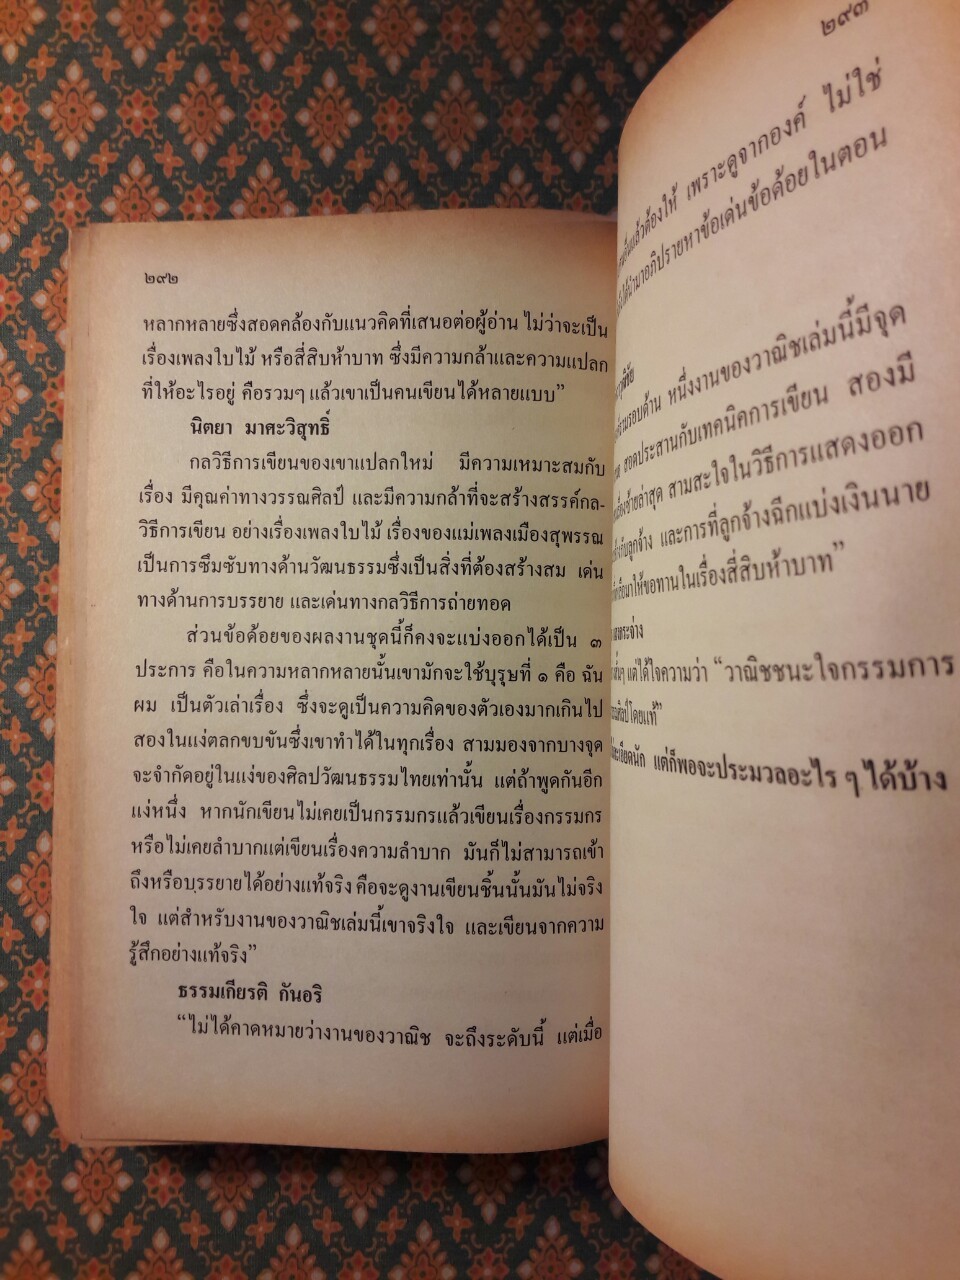 ๒๙๒
หลากหลายซึ่งสอดคล้องกับแนวคิดที่เสนอต่อผู้อ่าน ไม่ว่าจะเป็น
เรื่องเพลงใบไม้ หรือสี่สิบห้าบาท ซึ่งมีความกล้าและความแปลก
ที่ให้อะไรอยู่ คือรวมๆ แล้วเขาเป็นคนเขียนได้หลายแบบ”
นิตยา มาศะวิสุทธิ์
กลวิธีการเขียนของเขาแปลกใหม่ มีความเหมาะสมกับ
เรื่อง มีคุณค่าทางวรรณศิลป์ และมีความกล้าที่จะสร้างสรรค์กล-
วิธีการเขียน อย่างเรื่องเพลงใบไม้ เรื่องของแม่เพลงเมืองสุพรรณ
เป็นการซึมซับทางด้านวัฒนธรรมซึ่งเป็นสิ่งที่ต้องสร้างสม เด่น
ทางด้านการบรรยาย และเด่นทางกลวิธีการถ่ายทอด
ส่วนข้อด้อยของผลงานชุดนี้ก็คงจะแบ่งออกได้เป็น ๓
ประการ คือในความหลากหลายนั้นเขามักจะใช้บุรุษที่ ๑ คือ ฉัน
ผม เป็นตัวเล่าเรื่อง ซึ่งจะดูเป็นความคิดของตัวเองมากเกินไป
สองในแง่ตลกขบขันซึ่งเขาทำได้ในทุกเรื่อง สามมองจากบางจุด
จะจำกัดอยู่ในแง่ของศิลปวัฒนธรรมไทยเท่านั้น แต่ถ้าพูดกันอีก
แง่หนึ่ง หากนักเขียนไม่เคยเป็นกรรมกรแล้วเขียนเรื่องกรรมกร
หรือไม่เคยลำบากแต่เขียนเรื่องความลำบาก มันก็ไม่สามารถเข้า
ถึงหรือบรรยายได้อย่างแท้จริง คือจะดูงานเขียนชิ้นนั้นมันไม่จริง
ใจ แต่สำหรับงานของวาณิชเล่มนี้เขาจริงใจ และเขียนจากความ
รู้สึกอย่างแท้จริง”
ธรรมเกียรติ กันอริ
“ไม่ได้คาดหมายว่างานของวาณิช จะถึงระดับนี้ แต่เมื่อ
๒๙๓
แล้วต้องให้ เพราะดูจากองค์ ไม่ใช่
ได้นำมาอภิปรายหาข้อเด่นข้อด้อยในตอน
รอบด้าน หนึ่งงานของวาณิชเล่มนี้มีจุด
สอดประสานกับเทคนิคการเขียน สองมี
ล่าสุด สามสะใจในวิธีการแสดงออก
กับลูกจ้าง และการที่ลูกจ้างฉีกแบ่งเงินนาย
มาให้ขอทานในเรื่องสี่สิบห้าบาท”
แต่ได้ใจความว่า “วาณิชชนะใจกรรมการ
โดยแท้”
ละเอียดนัก แต่ก็พอจะประมวลอะไร ๆ ได้บ้าง